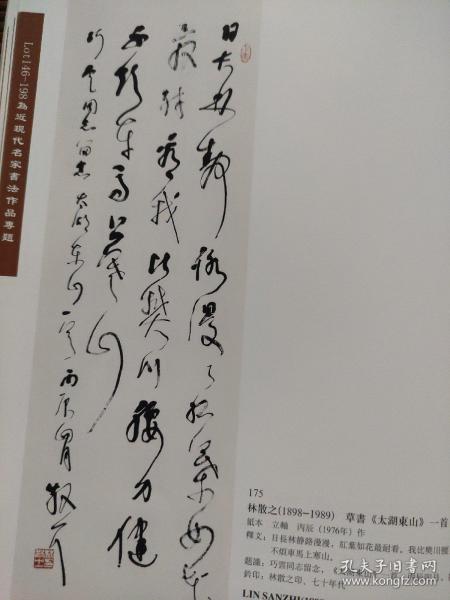 Lot 146-198為近現代名家書法作品專題
日長林靜路漫々紅葉如花
最耐看我比樊川腰力健
不煩車馬上寒山
巧雲同志留念太湖東山一首丙辰四月散耳
175
林散之(1898-1989) 草書《太湖東山》一首
紙本 立軸 丙辰(1976年)作
釋文：日長林靜路漫漫，紅葉如花最耐看，我比樊川腰
不煩車馬上寒山。
題識：巧雲同志留念，
鈐印：林散之印、七十年代
LIN SANZHI(1898
孔夫子旧书网